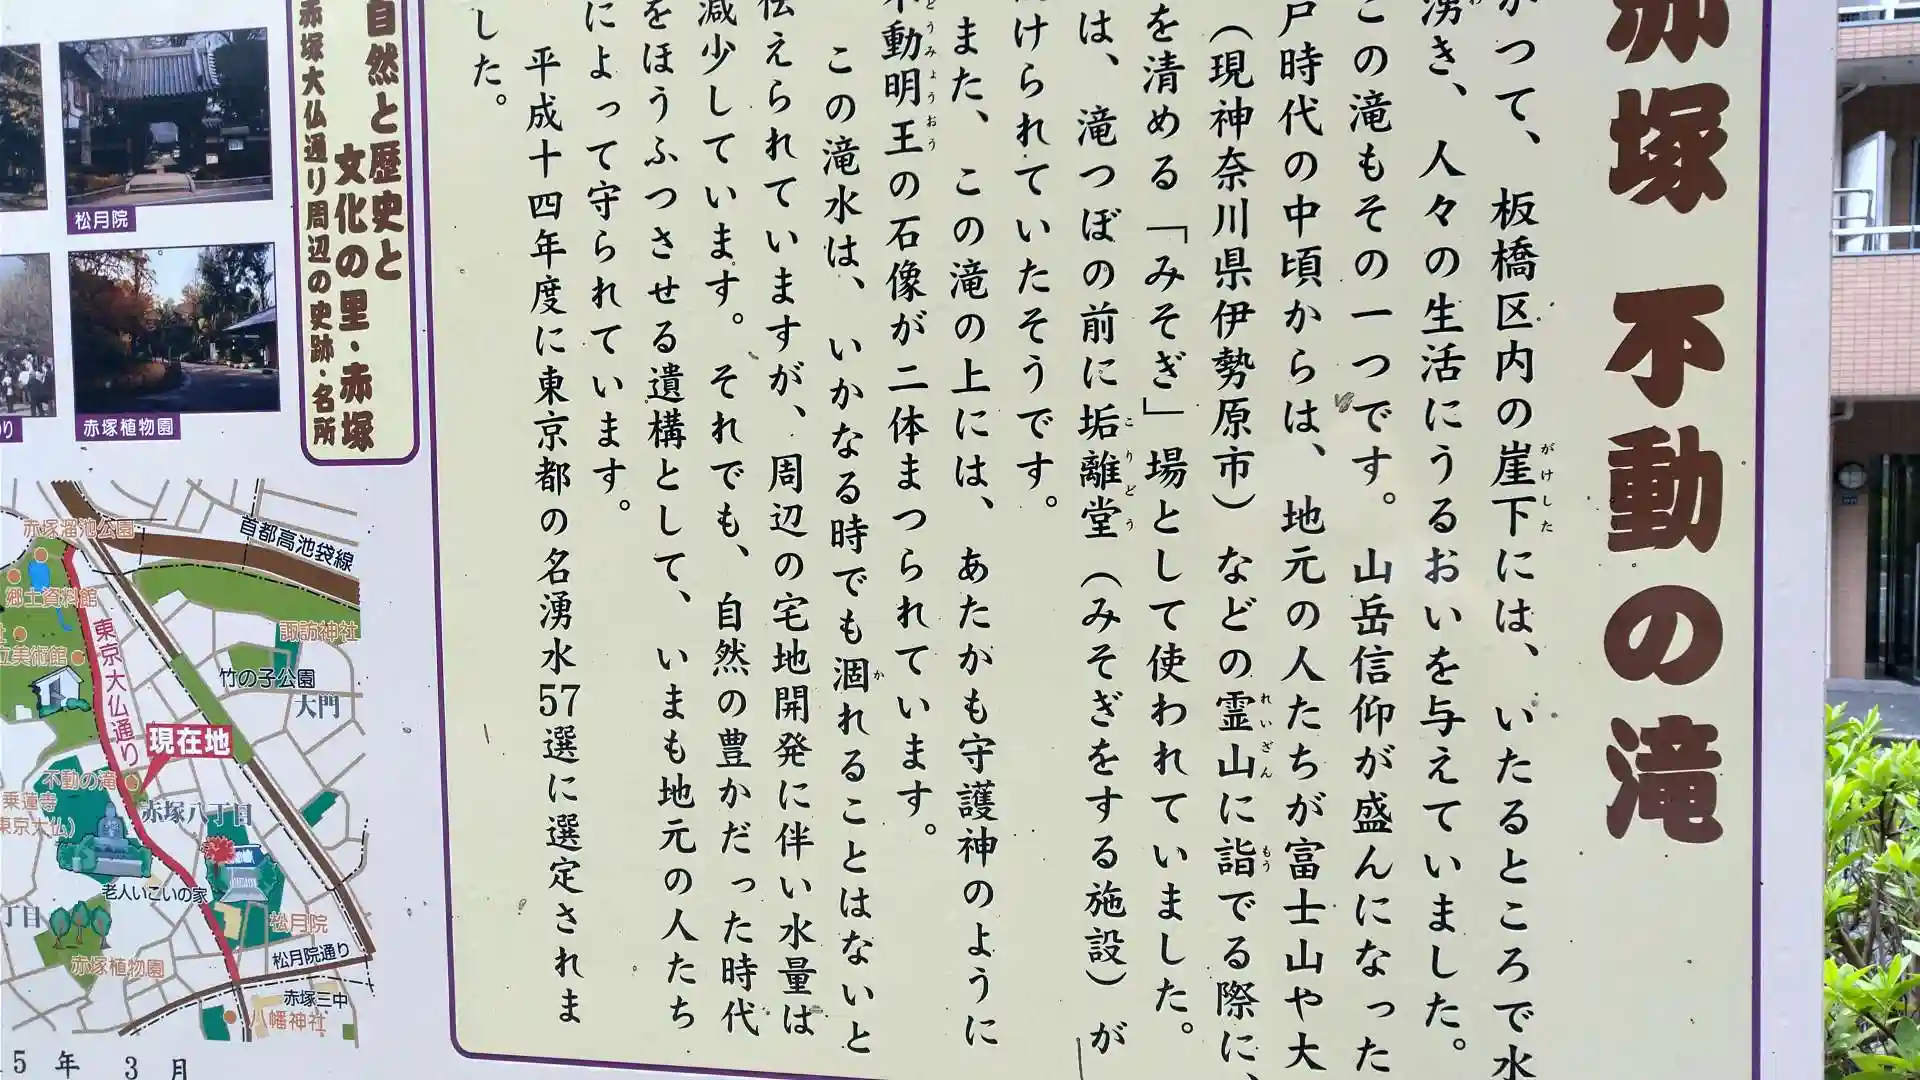 赤塚 不動の滝
かつて、板橋区内の崖下には、いたるところで水
湧き、人々の生活にうるおいを与えていました。
この滝もその一つです。山岳信仰が盛んになった
戸時代の中頃からは、地元の人たちが富士山や大
（現神奈川県伊勢原市）などの霊山に詣でる際に、
を清める「みそぎ」場として使われていました。
は、滝つぼの前に垢離堂（みそぎをする施設）が
けられていたそうです。
また、この滝の上には、あたかも守護神のように
不動明王の石像が二体まつられています。
この滝水は、いかなる時でも涸れることはないと
伝えられていますが、周辺の宅地開発に伴い水量は
減少しています。それでも、自然の豊かだった時代
をほうふつさせる遺構として、いまも地元の人たち
によって守られています。
平成十四年度に東京都の名湧水57選に選定されま
した。
がけした
れいざん
もう
こりどう
どうみょうおう
か
自然と歴史と
文化の里・赤塚
赤塚大仏通り周辺の史跡・名所
松月院
赤塚植物園
り
赤塚溜池公園
首都高池袋線
郷土資料館
立美術館
東京大仏通り
諏訪神社
竹の子公園
大門
現在地
不動の滝
乗蓮寺
東京大仏)
赤塚八丁目
老人いこいの家
丁目
松月院
赤塚植物園
松月院通り
赤塚三中
八幡神社
5年 3月